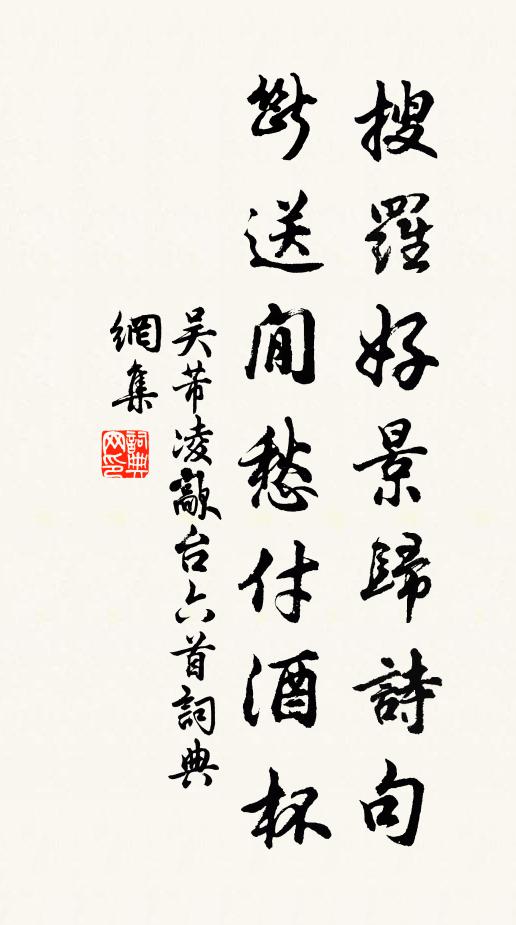 搜羅好景歸詩句
斷送閒愁付酒杯
吳芾凌敲台六首詞典
網集
詞典
網印